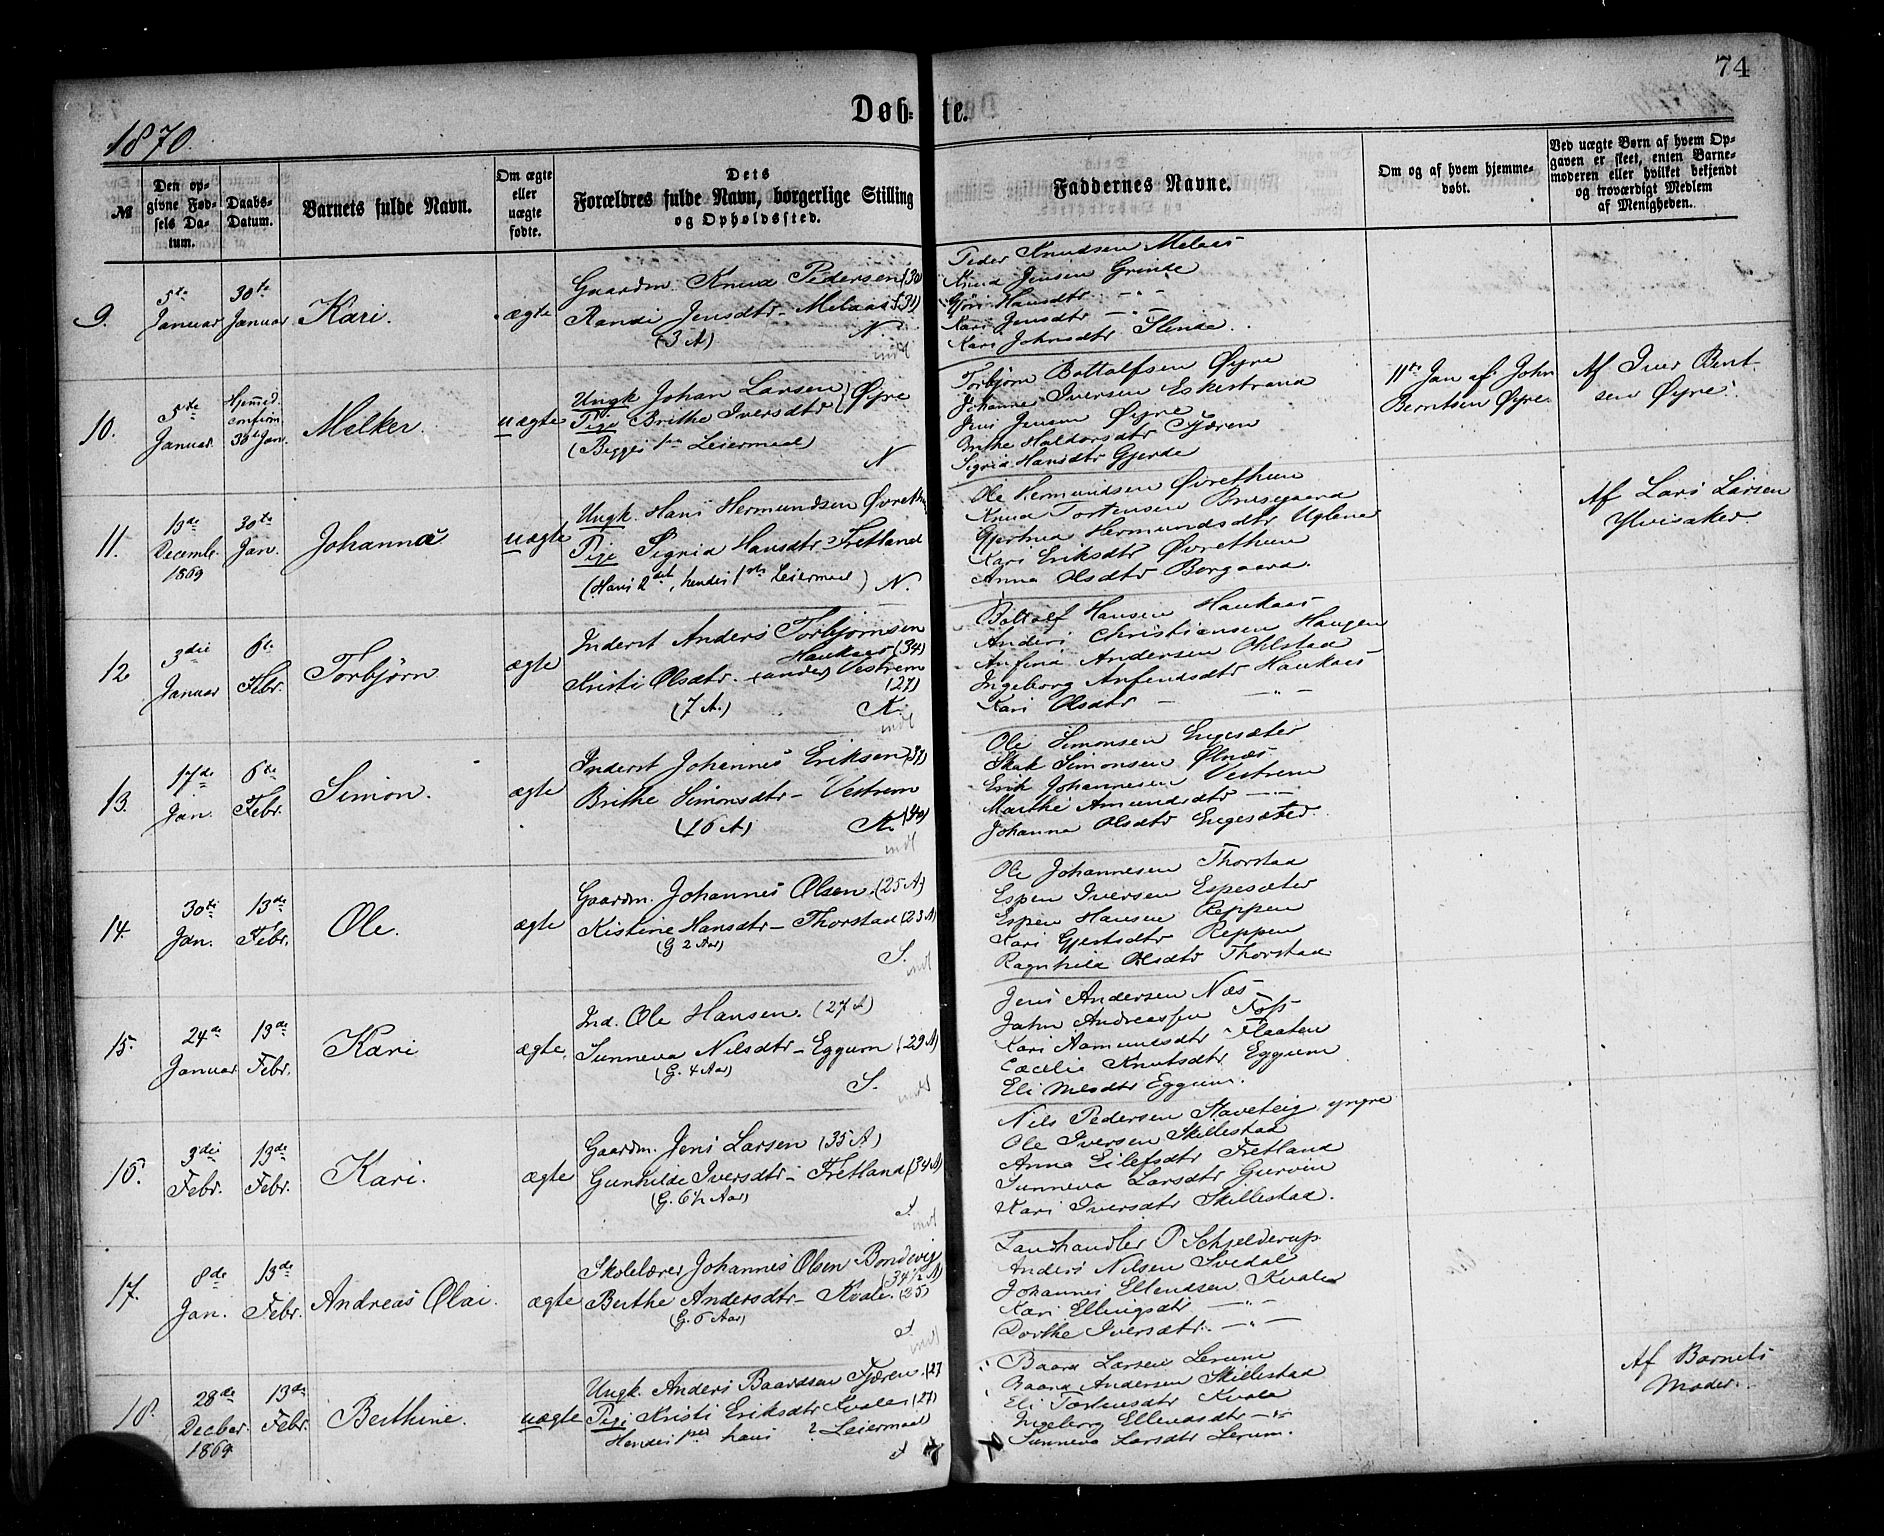 74
Døb-te.
1870
№
Den op-
givne Fød-
sels Da-
tum.
Daabs-
Datum.
Barnets fulde Navn.
Om ægte
eller
uægte
fødte.
Dets
Forældres fulde Navn, borgerlige Stilling
og Opholdssted.
Faddernes Navne.
Om og af hvem hjemme-
døbt.
Ved uægte Børn af hvem Op-
gaven er skeet, enten Barne-
moderen eller hvilket bekjendt
og troværdigt Medlem
af Menigheden.
9.
5te
Januar
30te
Januar
Kari.
ægte
Gaardm. Knud Pedersen (30)
Randi Jensdtr - Melaas (31)
(3 A)
N
indt
Peder Knudsen Melaas
Knud Jensen Grinde
Gjøri Hansdtr - " -
Kari Jensdtr - " -
Kari Johnsdtr Slinde.
10.
5te
Januar
Hjemmed.
confirm.
30te Jan.
Melker.
uægte
Ungk Johan Larsen } Øyre
Pige Brithe Iversdtr
(Begges 1ste Leiermaal)
N
Torbjørn Bottolfsen Øyre
Johannes Iversen Eskestrand
Jens Jensen Øyre
Brithe Haldorsdtr Fjæren
Sigrid Hansdtr Gjerde
11te Jan af John
Berntsen Øyre.
Af Iver Bent-
sen Øyre.
11.
13de
Decemb.
1869
30te
Jan.
Johanna
uægte
Ungk. Hans Hermundsen Øvrethun
Pige Sigrid Hansdtr Fretland
(Hans 2det, hendes 1ste Leiermaal)
N.
Ole Hermundsen Øvrethun
Knud Torstensen Brusegaard
Gjertrud Hermundsdtr Uglene
Kari Eriksdtr Øvrethun
Anna Olsdtr Borgaard.
Af Lars Larsen
Ylvisaker.
12
3die
Januar
6te
Febr.
Torbjørn
ægte
Inderst Anders Torbjørnsen
Haukaas (34)
Kristi Olsdtr. (andes) Vestrem
(27)
(7 A.)
K.
indt
Bottolf Hansen Haukaas
Anders Christiansen Haugen
Anfind Andersen Ølstad
Ingeborg Anfindsdtr Haukaas
Kari Olsdtr - " -
13.
17de
Jan.
6te
Febr.
Simon.
ægte
Inderst Johannes Eriksen (37)
Brithe Simonsdtr - Vestrem
(40)
(16 A)
K.
indt
Ole Simonsen Engesæter
Skak Simonsen Ølnæs
Erik Johannesen Vestrem
Marthe Amundsdtr - " -
Johanna Olsdtr Engesæter.
14.
30te
Jan.
13de
Febr.
Ole.
ægte
Gaardm. Johannes Olsen. (25 A)
Kistine Hansdtr - Thorstad (23 A)
(G 2 Aar)
S.
indt
Ole Johannesen Thorstad
Espen Iversen Espesæter
Espen Hansen Reppen
Kari Gjertsdtr Reppen
Ragnhild Olsdtr Thorstad
15.
24de
Januar
13de
Febr.
Kari
ægte.
Ind. Ole Hansen. (27 A)
Sunneva Nilsdtr - Eggum (29 A)
(G. 4 Aar)
S.
indt
Jens Andersen Næs
John Andreassen Foss
Kari Aamundsdtr Flaaten
Cæcilie Knutsdtr Eggum
Eli Nilsdtr Eggum.
16.
3die
Febr.
13de
Febr.
Kari.
ægte
Gaardm. Jens Larsen (35 A)
Gunhilde Iversdtr - Fretland (34 A)
(G. 6½ Aar)
indt
Nils Pedersen Staveteig yngre
Ole Iversen Skillestad
Anna Eilefsdtr Fretland
Sunneva Larsdtr Gurvin
Kari Iversdtr Skillestad.
17.
8de
Jan.
13de
Febr.
Andreas Olai.
ægte
Skolelærer Johannes Olsen Bondevig
(34½ A)
Berthe Andersdtr - Kvale. (35)
(G. 6 Aar)
indt
Landhandler P Schjelderup
Anders Nilsen Svedal
Johannes Ellendsen Kvale
Kari Ellingsdtr - " -
Dorthe Iversdtr. - " -
18.
28de
Decbr.
1869
13de
Febr.
Berthine.
uægte
Ungk. Anders Baardsen Fjæren. (27
Pige Kristi Eriksdtr Kvale (27)
Hendes 1ste hans 2 Leiermaal
Baard Larsen Lerum
Baard Andersen Skillestad
Eli Torstensdtr Kvale
Ingeborg Ellendsdtr - " -
Sunneva Larsdtr Lerum.
Af Barnets
Moder.